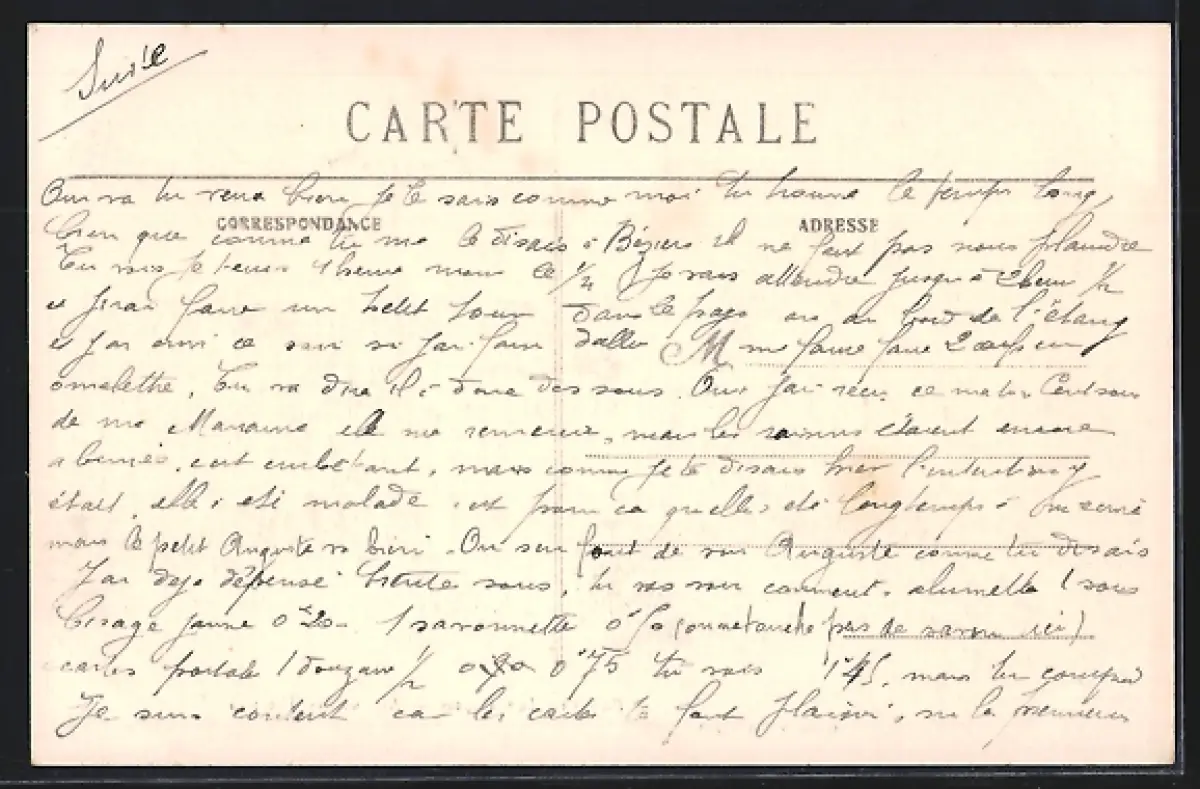 Suite
CARTE POSTALE
tu bien je le sais comme moi tu trouve le temps long,
CORRESPONDANCE ADRESSE
bien que comme tu me le disais à Béziers il ne faut pas nous plaindre
Tu vois je 1 heure moins le 1/4 je vais attendre jusqu'à 2 heur 1/2
et j'irai faire un petit tour dans le pays ou au bord de l'étang
et j'ai ce soir si j'ai faim d'aller me faire faire 2 œufs en
omelette. Tu va dire il a donc des sous. Oui j'ai reçu ce matin Cent sous
de ma Marraine elle me remercie, mais les raisins étaient encore
abimés, c'est embêtant, mais comme je te disais hier l'intention y
était, elle a été malade, c'est pour ça qu'elle a été longtemps à
mais le petit Auguste va bien. On s'en fout de son Auguste comme tu disais
J'ai déjà dépensé trente sous, tu vas voir comment, alumette 1 sous
Cirage jaune 0 20 1 savonnette (on me touche pas de savon ici)
cartes postale 1 douzaine 1/2 0'75 tu vois 1'45, mais tu comprend
Je suis content car les cartes te font plaisir, sur la première